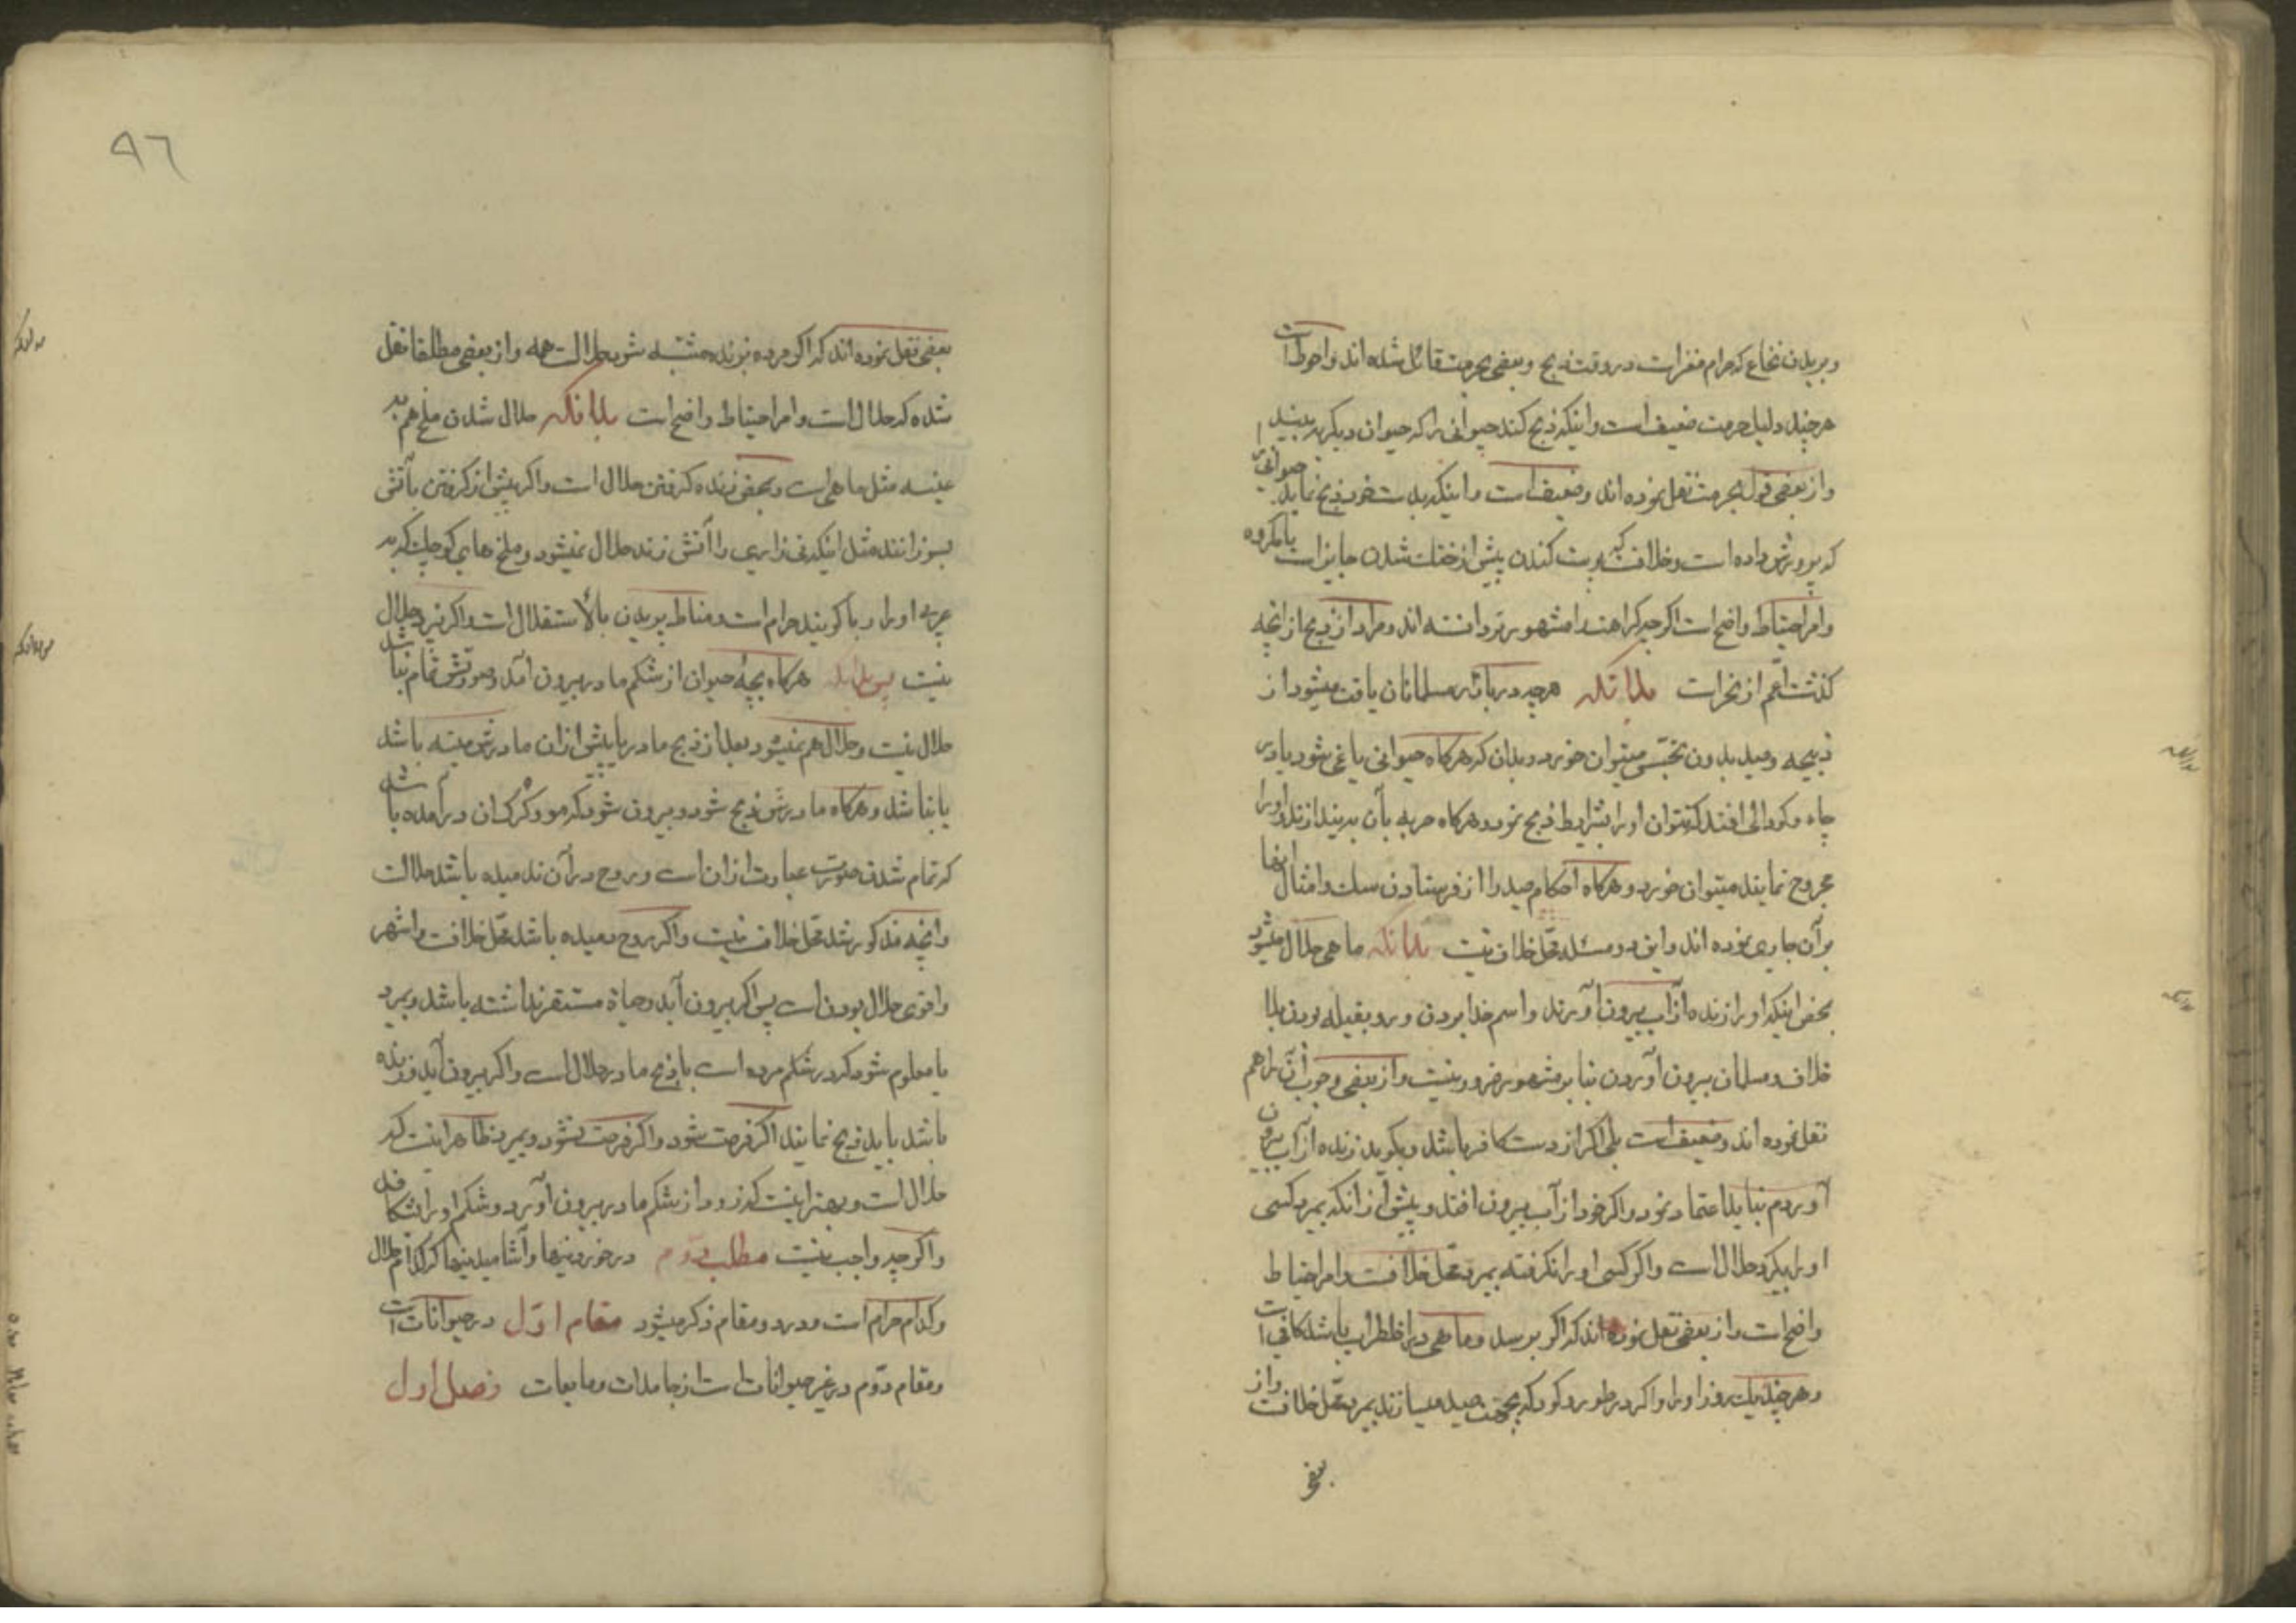 وبریدن نخاع که حرام مغز است در وقت ذبح وبعضی بحرمت قائل شده اند واحوط است
هرچند دلیل حرمت ضعیف است واینکه ذبح کند حیوانی را که حیوان دیگر به بیند
واز بعضی قول بحرمت نقل نموده اند وضعیف است واینکه بدست خود ذبح نماید حیوانی را
که پرورش داده است وخلاف که پوست کندن پیش از خنک شدن جایز است یا مکروه
وامر احتیاط واضح است اگرچه کراهت را مشهورتر دانسته اند ومراد از ذبح از انچه
گذشت اعم از نحر است بدانکه هرچه در بازار مسلمانان یافت میشود از
ذبیحه وصید بدون تجسس میتوان خورد وبدان که هرگاه حیوانی یاغی شود یا در
چاه وگودالی افتد که نتوان او را بشرایط ذبح نمود وهرگاه حربه بآن بیندازند واو را
مجروح نمایند میتوان خورد وهرگاه احکام صید را از فرستادن سک وامثال انها
بر آن جاری نموده اند واین دو مسئله محل خلاف نیست بدانکه ماهی حلال میشود
بمحض اینکه او را زنده از آب بیرون آورند واسم خدا بردن ورو بقبله بودن بلا
خلاف ومسلمان بیرون آوردن بنا بر مشهور ضرور نیست واز بعضی وجوب آن را هم
نقل نموده اند وضعیف است بلی اگر از دست کافر باشد وبگوید زنده از آب بیرون
آوردم نباید اعتماد نمود واگر خود از آب بیرون افتد وپیش از آنکه بمیرد کسی
او را بگیرد حلال است واگر کسی او را نگرفته بمیرد محل خلافست وامر احتیاط
واضح است واز بعضی نقل نموده اند که اگر برسد وماهی در اضطراب باشد کافی است
وهرچند یک روز او را واگر در طور وگودکه بجهت صید میسازند بمیرد محل خلافست واز
بعضی
٩٦
بعضی نقل نموده اند که اگر مرده بزنده مشتبه شود حلال است همه واز بعضی مطلقا نقل
شده که حلال است وامر احتیاط واضح است بدانکه حلال شدن ملخ هم به
عینه مثل ماهی است وبمحض زنده گرفتن حلال است واگر پیش از گرفتن بآتش
بسوزانند مثل اینکه نی زاری را آتش زنند حلال نمیشود وملخ های کوچک که به
عربی او را دبا گویند حرام است ومناط پریدن بالاستقلال است واگر نپرد حلال
نیست پس بدانکه هرگاه بچهٔ حیوان از شکم مادر بیرون آمد وصورتش تمام نباشد
حلال نیست وحلال هم نمیشود بعد از ذبح مادر یا پیش از ان مادرش میته باشد
یا نباشد وهرگاه مادرش ذبح شود وبیرون شود که مو وکرک ان در آمده باشد
که تمام شدن صورت عبارت از ان است وروح در آن ندمیده باشد حلالت
وانچه مذکور شد محل خلاف نیست واگر روح دمیده باشد محل خلافست واشهر
واقوی حلال بودن است پس اگر بیرون آید وحیاة مستقر نداشته باشد وبمیرد
یا معلوم شود که در شکم مرده است با ذبح مادر حلال است واگر بیرون آید وزنده
باشد باید ذبح نمایند اگر فرصت شود واگر فرصت نشود وبمیرد ظاهر اینست که
حلال است وبهتر اینست که زود از شکم مادر بیرون آورد وشکم او را بشکافد
واگرچه واجب نیست مطلب دوم در خوردنیها وآشامیدنیها که کدام حلال
وکدام حرام است ودر دو مقام ذکر میشود مقام اول در حیوانات است
ومقام دوم در غیر حیوانات است از جامدات ومایعات فصل اول